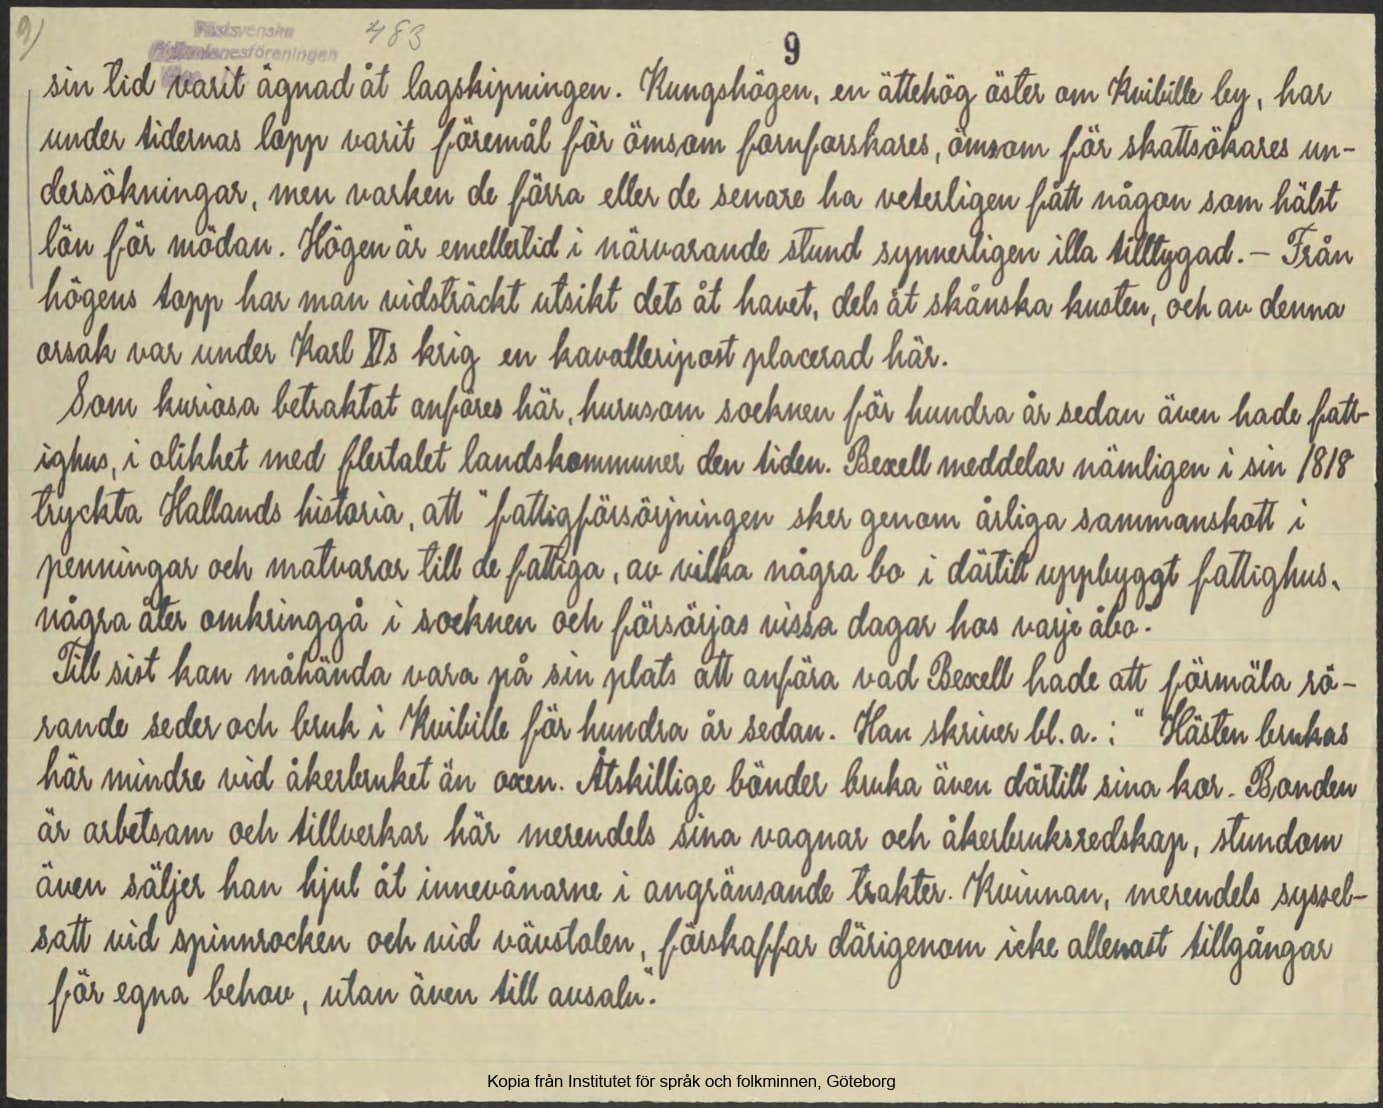 9)
483
Västsvenska
Folkminnesföreningen
9
sin tid varit ägnad åt lagskipningen. Kungshögen, en ättehög öster om Kvibille by, har
under tidernas lopp varit föremål för ömsom fornforskares, ömsom för skattsökares un-
dersökningar, men varken de förra eller de senare ha veterligen fått någon som hälst
lön för mödan. Högen är emellertid i närvarande stund synnerligen illa tilltygad. — Från
högens topp har man vidsträckt utsikt dels åt havet, dels åt skånska kusten, och av denna
orsak var under Karl XIs krig en kavalleripost placerad här.
Som kuriosa betraktat anföres här, hurusom socknen för hundra år sedan även hade fatt-
ighus, i olikhet med flertalet landskommuner den tiden. Bexell meddelar nämligen i sin 1818
tryckta Hallands historia, att "fattigförsörjningen sker genom årliga sammanskott i
penningar och matvaror till de fattiga, av vilka några bo i därtill uppbyggt fattighus,
några åter omkringgå i socknen och försörjas vissa dagar hos varje åbo".
Till sist kan måhända vara på sin plats att anföra vad Bexell hade att förmäla rö-
rande seder och bruk i Kvibille för hundra år sedan. Han skriver bl. a. : " Hästen brukas
här mindre vid åkerbruket än oxen. Åtskillige bönder bruka även därtill sina kor. Bonden
är arbetsam och tillverkar här merendels sina vagnar och åkerbruksredskap, stundom
även säljer han hjul åt innevånarne i angränsande trakter. Kvinnan, merendels syssel-
satt vid spinnrocken och vid vävstolen, förskaffar därigenom icke allenast tillgångar
för egna behov, utan även till avsalu".
Kopia från Institutet för språk och folkminnen, Göteborg